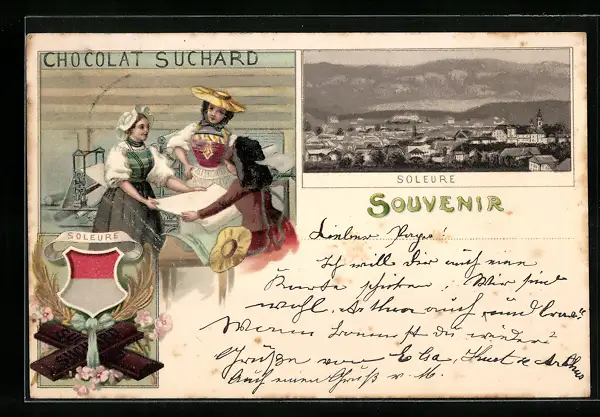 CHOCOLAT SUCHARD
SOLEURE
SOLEURE
SOUVENIR
Lieber
Ich will Dir auch eine
Karte schicken! Wir sind
wohl. Arthur auch
Wann kommst du wieder?
Grüße von Elsa, Kurt u Arthur
Auch einen Gruß v. M.